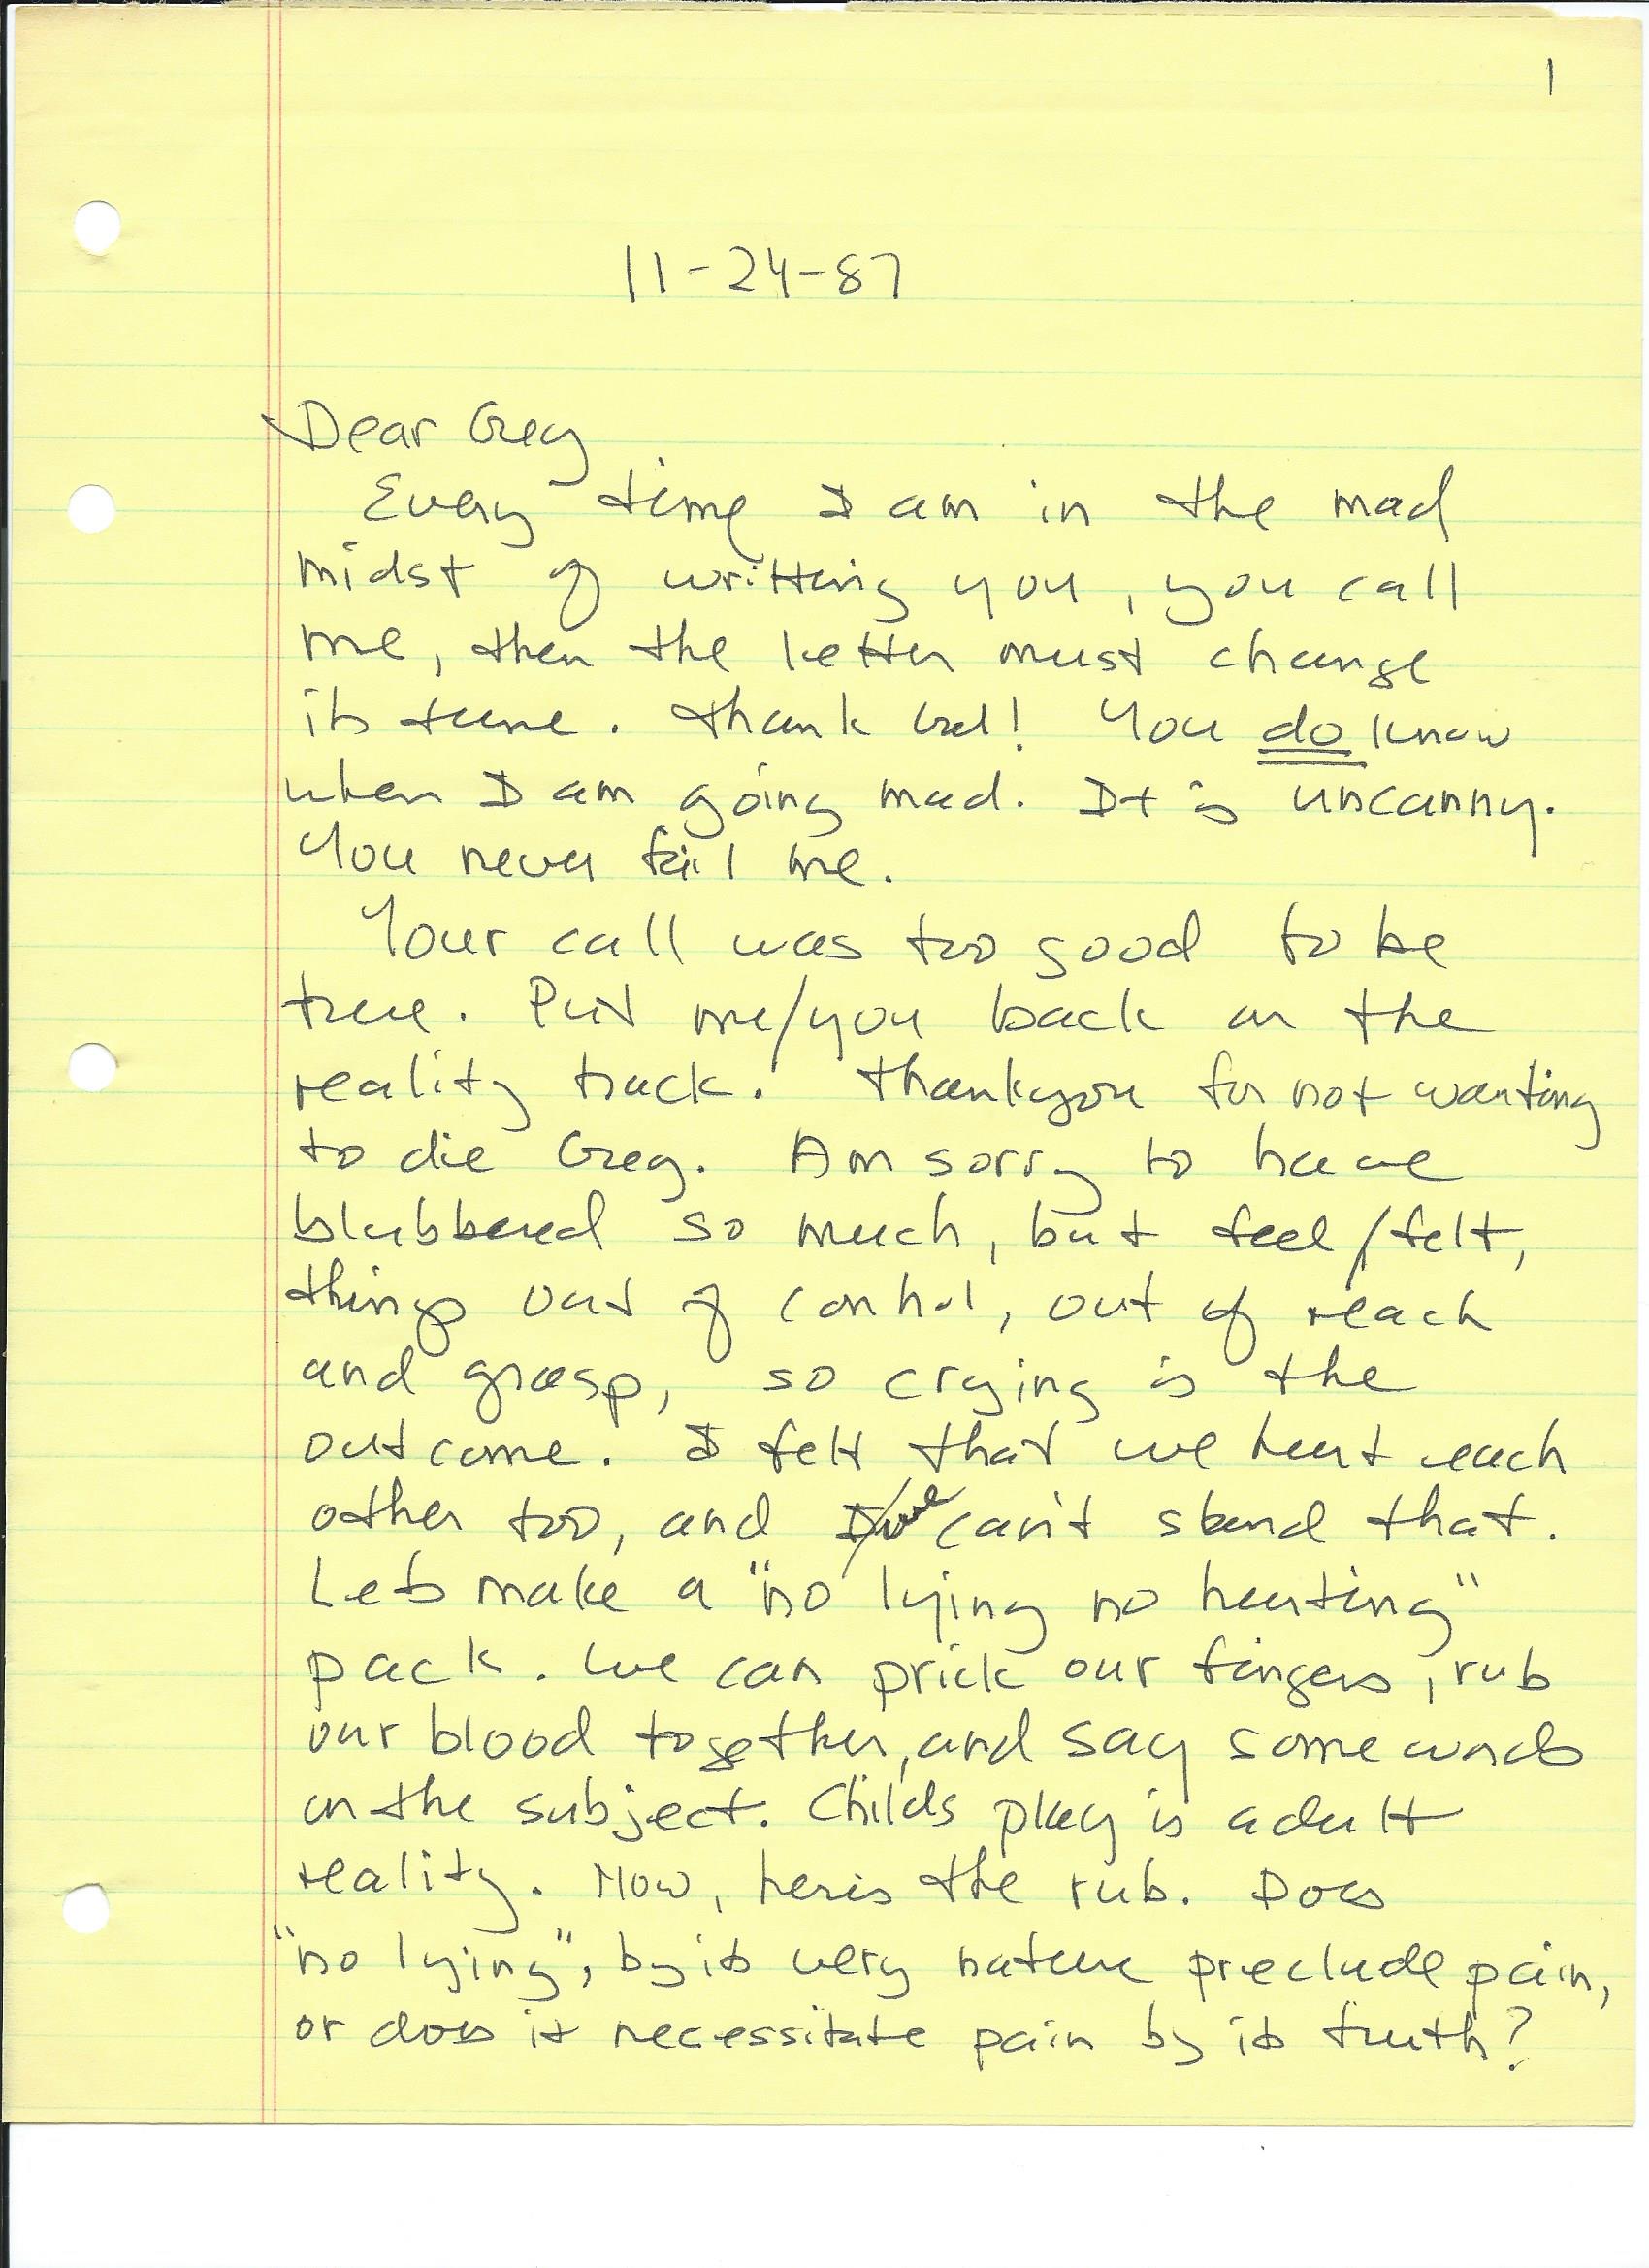 1
11-24-87
Dear Greg
Every time I am in the mad
midst of writting you, you call
me, then the letter must change
its tune. Thank God! You do know
when I am going mad. It is uncanny.
You never fail me.
Your call was too good to be
true. Put me/you back on the
reality track. Thankyou for not wanting
to die Greg. Am sorry to have
blubbered so much, but feel/felt,
things out of control, out of reach
and grasp, so crying is the
outcome. I felt that we hurt each
other too, and we can't stand that.
Lets make a "no lying no hurting"
pack. We can prick our fingers, rub
our blood together, and say some words
on the subject. Childs play is adult
reality. Now, here's the rub. Does
"no lying", by its very nature preclude pain,
or does it necessitate pain by its truth?